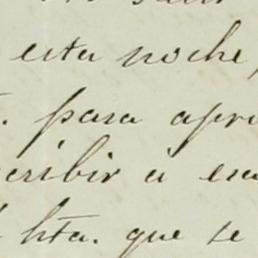 esta noche,
para apro
cribir a esa
hta. que se